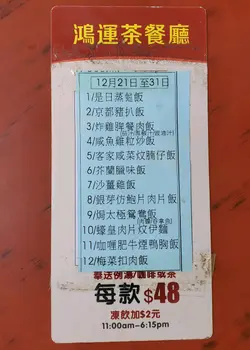 鴻運茶餐廳
12月21日至31日
1/是日蒸飯
2/京都豬扒飯
3/炸雞脾餐肉飯
4/咸魚雞粒炒飯
5/客家咸菜炆腩仔飯
6/芥蘭臘味飯
7/沙薑雞飯
8/銀芽仿鮑片肉片飯
9/焗太極鴛鴦飯
10/蠔皇肉片炆伊麵
11/咖喱肥牛煙鴨胸飯
12/梅菜扣肉飯
奉送例湯/咖啡或茶
每款$48
凍飲加$2元
11:00am-6:15pm